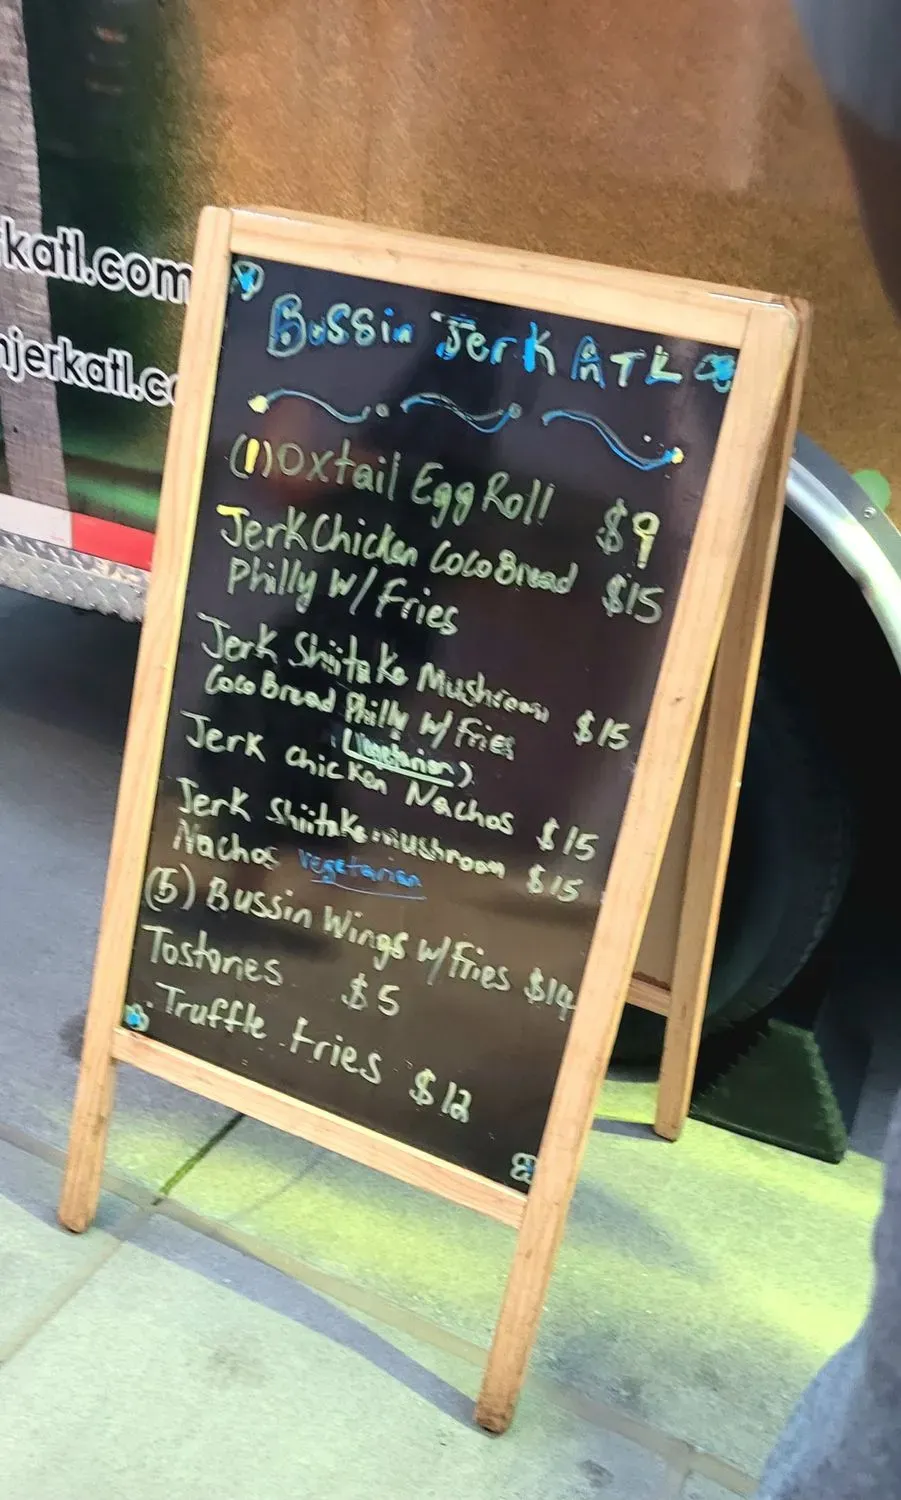 katl.com
njerkatl.co
Bussin Jerk ATL
(1) Oxtail Egg Roll $9
Jerk Chicken Coco Bread $15
Philly w/ Fries
Jerk Shiitake Mushroom
Coco Bread Philly w/ Fries $15
(Vegetarian)
Jerk chicken Nachos $15
Jerk Shiitake mushroom
Nachos vegetarian $15
(5) Bussin Wings w/ fries $14
Tostones $5
Truffle fries $12